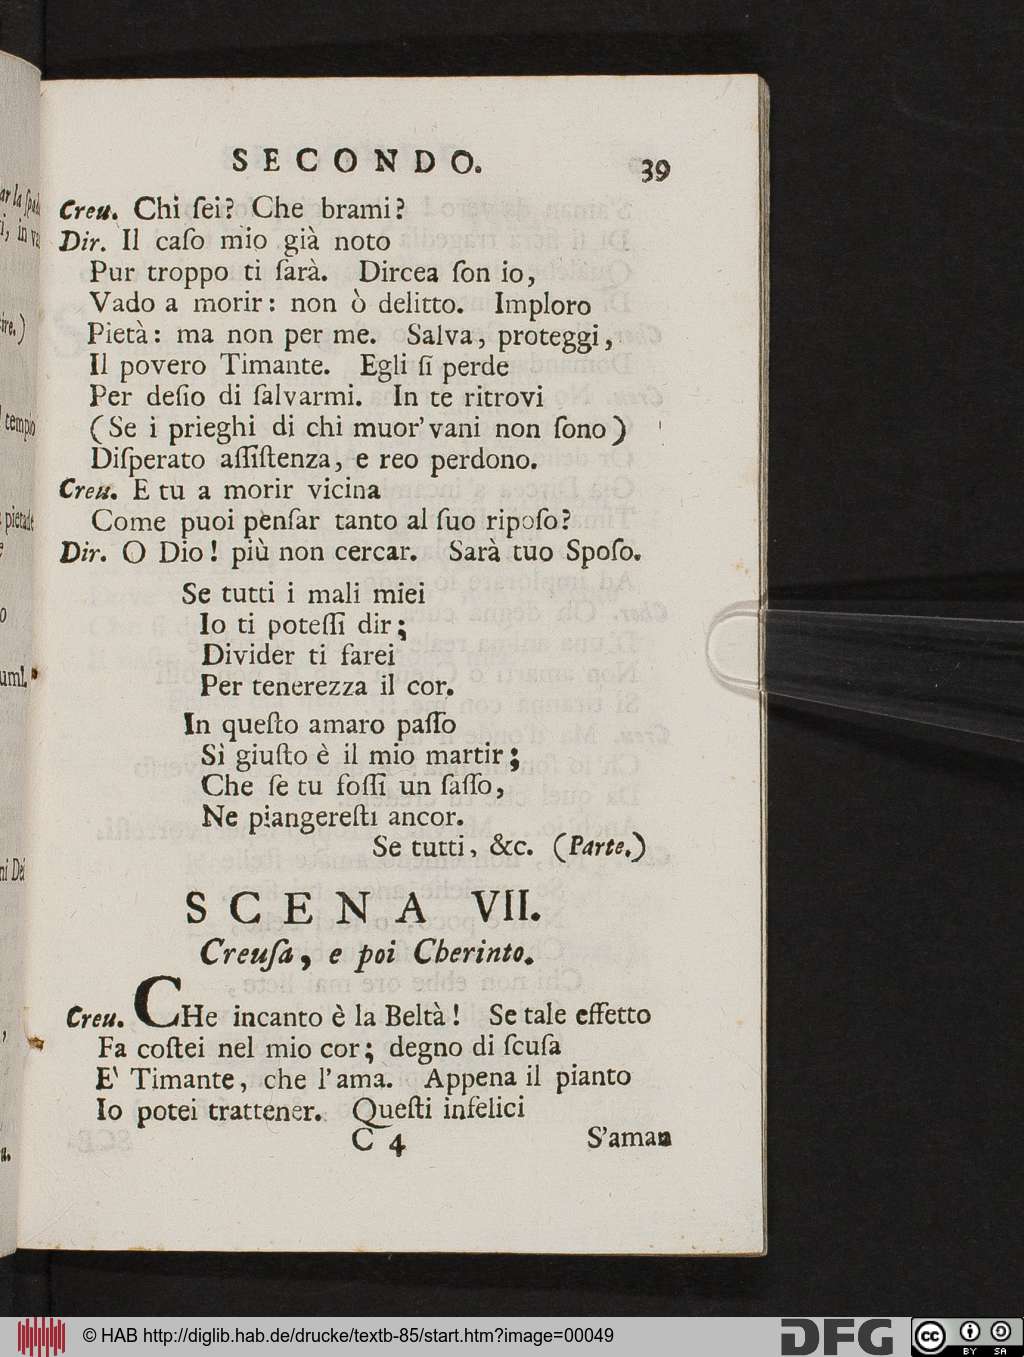 SECONDO. 39
Creu. Chi ſei? Che brami?
Dir. Il caſo mio già noto
Pur troppo ti ſarà. Dircea ſon io,
Vado a morir: non ò delitto. Imploro
Pietà: ma non per me. Salva, proteggi,
Il povero Timante. Egli ſi perde
Per deſio di ſalvarmi. In te ritrovi
(Se i prieghi di chi muor' vani non ſono)
Diſperato aſſiſtenza, e reo perdono.
Creu. E tu a morir vicina
Come puoi penſar tanto al ſuo ripoſo?
Dir. O Dio! più non cercar. Sarà tuo Spoſo.
Se tutti i mali miei
Io ti poteſſi dir;
Divider ti farei
Per tenerezza il cor.
In queſto amaro paſſo
Sì giuſto è il mio martir;
Che ſe tu foſſi un ſaſſo,
Ne piangereſti ancor.
Se tutti, &c. (Parte.)
SCENA VII.
Creuſa, e poi Cherinto.
Creu. CHe incanto è la Beltà! Se tale effetto
Fa coſtei nel mio cor; degno di ſcuſa
E' Timante, che l'ama. Appena il pianto
Io potei trattener. Queſti infelici
C 4 S'aman
© HAB http://diglib.hab.de/drucke/textb-85/start.htm?image=00049
DFG
cc BY SA